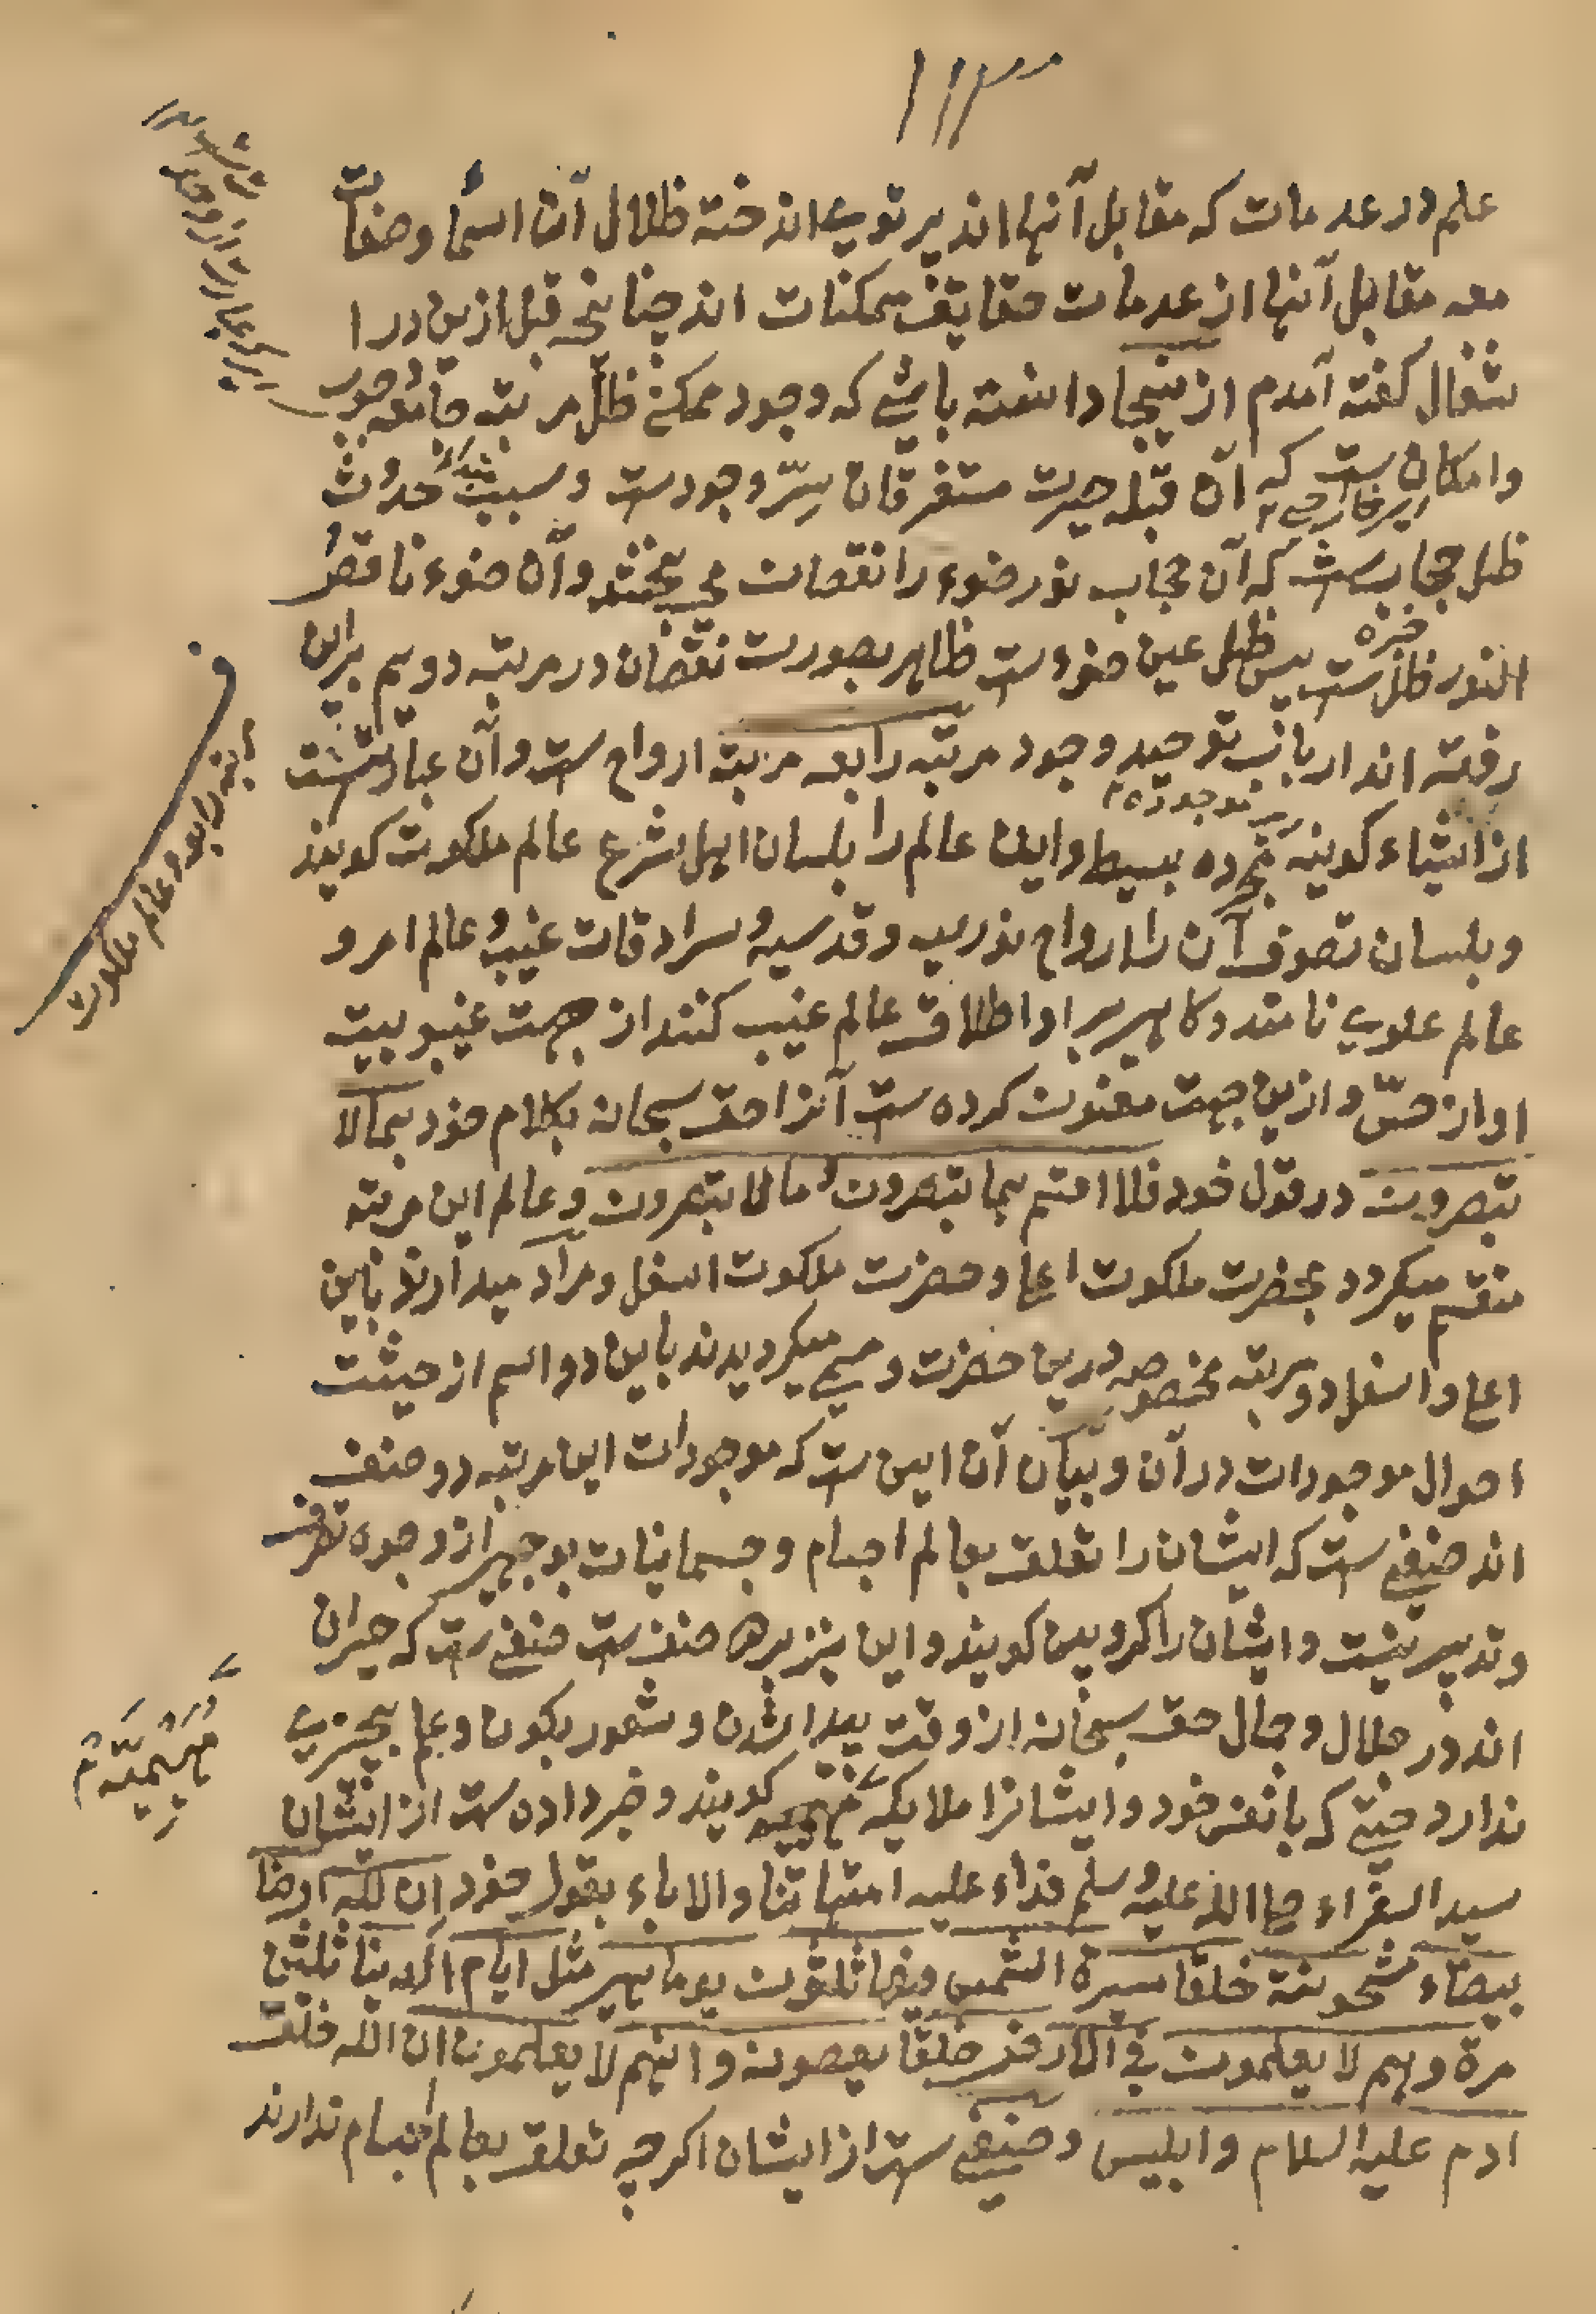 ۱۱۳
علم در عدمات که مقابل آنها اند پرتوی انداخته ظلال آن اسما و صفات
معه مقابل آنها از عدمات حقایق ممکنات اند چنانچه قبل ازین در ا
شغال گفته آمدم ازینجا دانسته باشی که وجود ممکن ظل مرتبه جامعه وجوب
وامکان ست که آن قبله حیرت مستغرقان سرّ وجودست و سبب حدوث
ظل حجابیست که آن حجاب نور ضوء را نقصان می بخشد و آن ضوء ناقص
النور ظل ست پس ظل عین ضوء ست ظاهر بصورت نقصان در مرتبه دویم براین
رفته اند ارباب توحید وجود مرتبه رابعه مرتبه ارواح ست و آن عبارتست
از اشیاء کونیه مجرده بسیط و این عالم را بلسان اهل شرع عالم ملکوت کویند
و بلسان تصوف آن را ارواح نوریه و قدسیه و سرادقات غیب و عالم امر و
عالم علوی نامند و کاهی برا و اطلاق عالم غیب کنند از جهت غیبوبیت
او از حسّ و ازین جهت معنون کرده ست آنرا حق سبحانه بکلام خود بما لا
تبصرون در قول خود فلا اقسم بما تبصرون وما لا تبصرون و عالم این مرتبه
منقسم میکردد بحضرت ملکوت اعلی و حضرت ملکوت اسفل و مراد میدارند باین
اعلی و اسفل دو مرتبه مخصوصه درین حضرت و مسمی میکردیدند باین دو اسم از حیثیت
احوال موجودات در آن و بیان آن این ست که موجودات این مرتبه دو صنف
اند صنفی ست که ایشان را تعلق بعالم اجسام و جسمانیات بوجهی از وجوه تصرف
و تدبیر نیست و ایشان را کروبین کویند و این نیز بردو صنف ست صنفی ست که حیران
اند در جلال و جمال حق سبحانه از وقت پیدا شدن و شعور بکون و علم بچیزی
ندارد حتی که بانفس خود و ایشانرا ملایکه مهیمیه کویند و خبر داده ست از ایشان
سید البقراء صلی الله علیه وسلم فداء علیه امهاتنا والاباء بقول خود ان لله ارضا
بیضاء مشحونة خلقا مسیرة الشمس فیها ثلثون یوما هی مثل ایام الدنیا ثلثین
مرة وهم لا یعلمون فی الارض خلقا یعصونه وانهم لا یعلمون ان الله خلق
ادم علیه السلام وابلیس و صنفی ست از ایشان اکرچه تعلق بعالم اجسام ندارند
مرتبه رابعه و عالم ملکوت
مهیمیّه